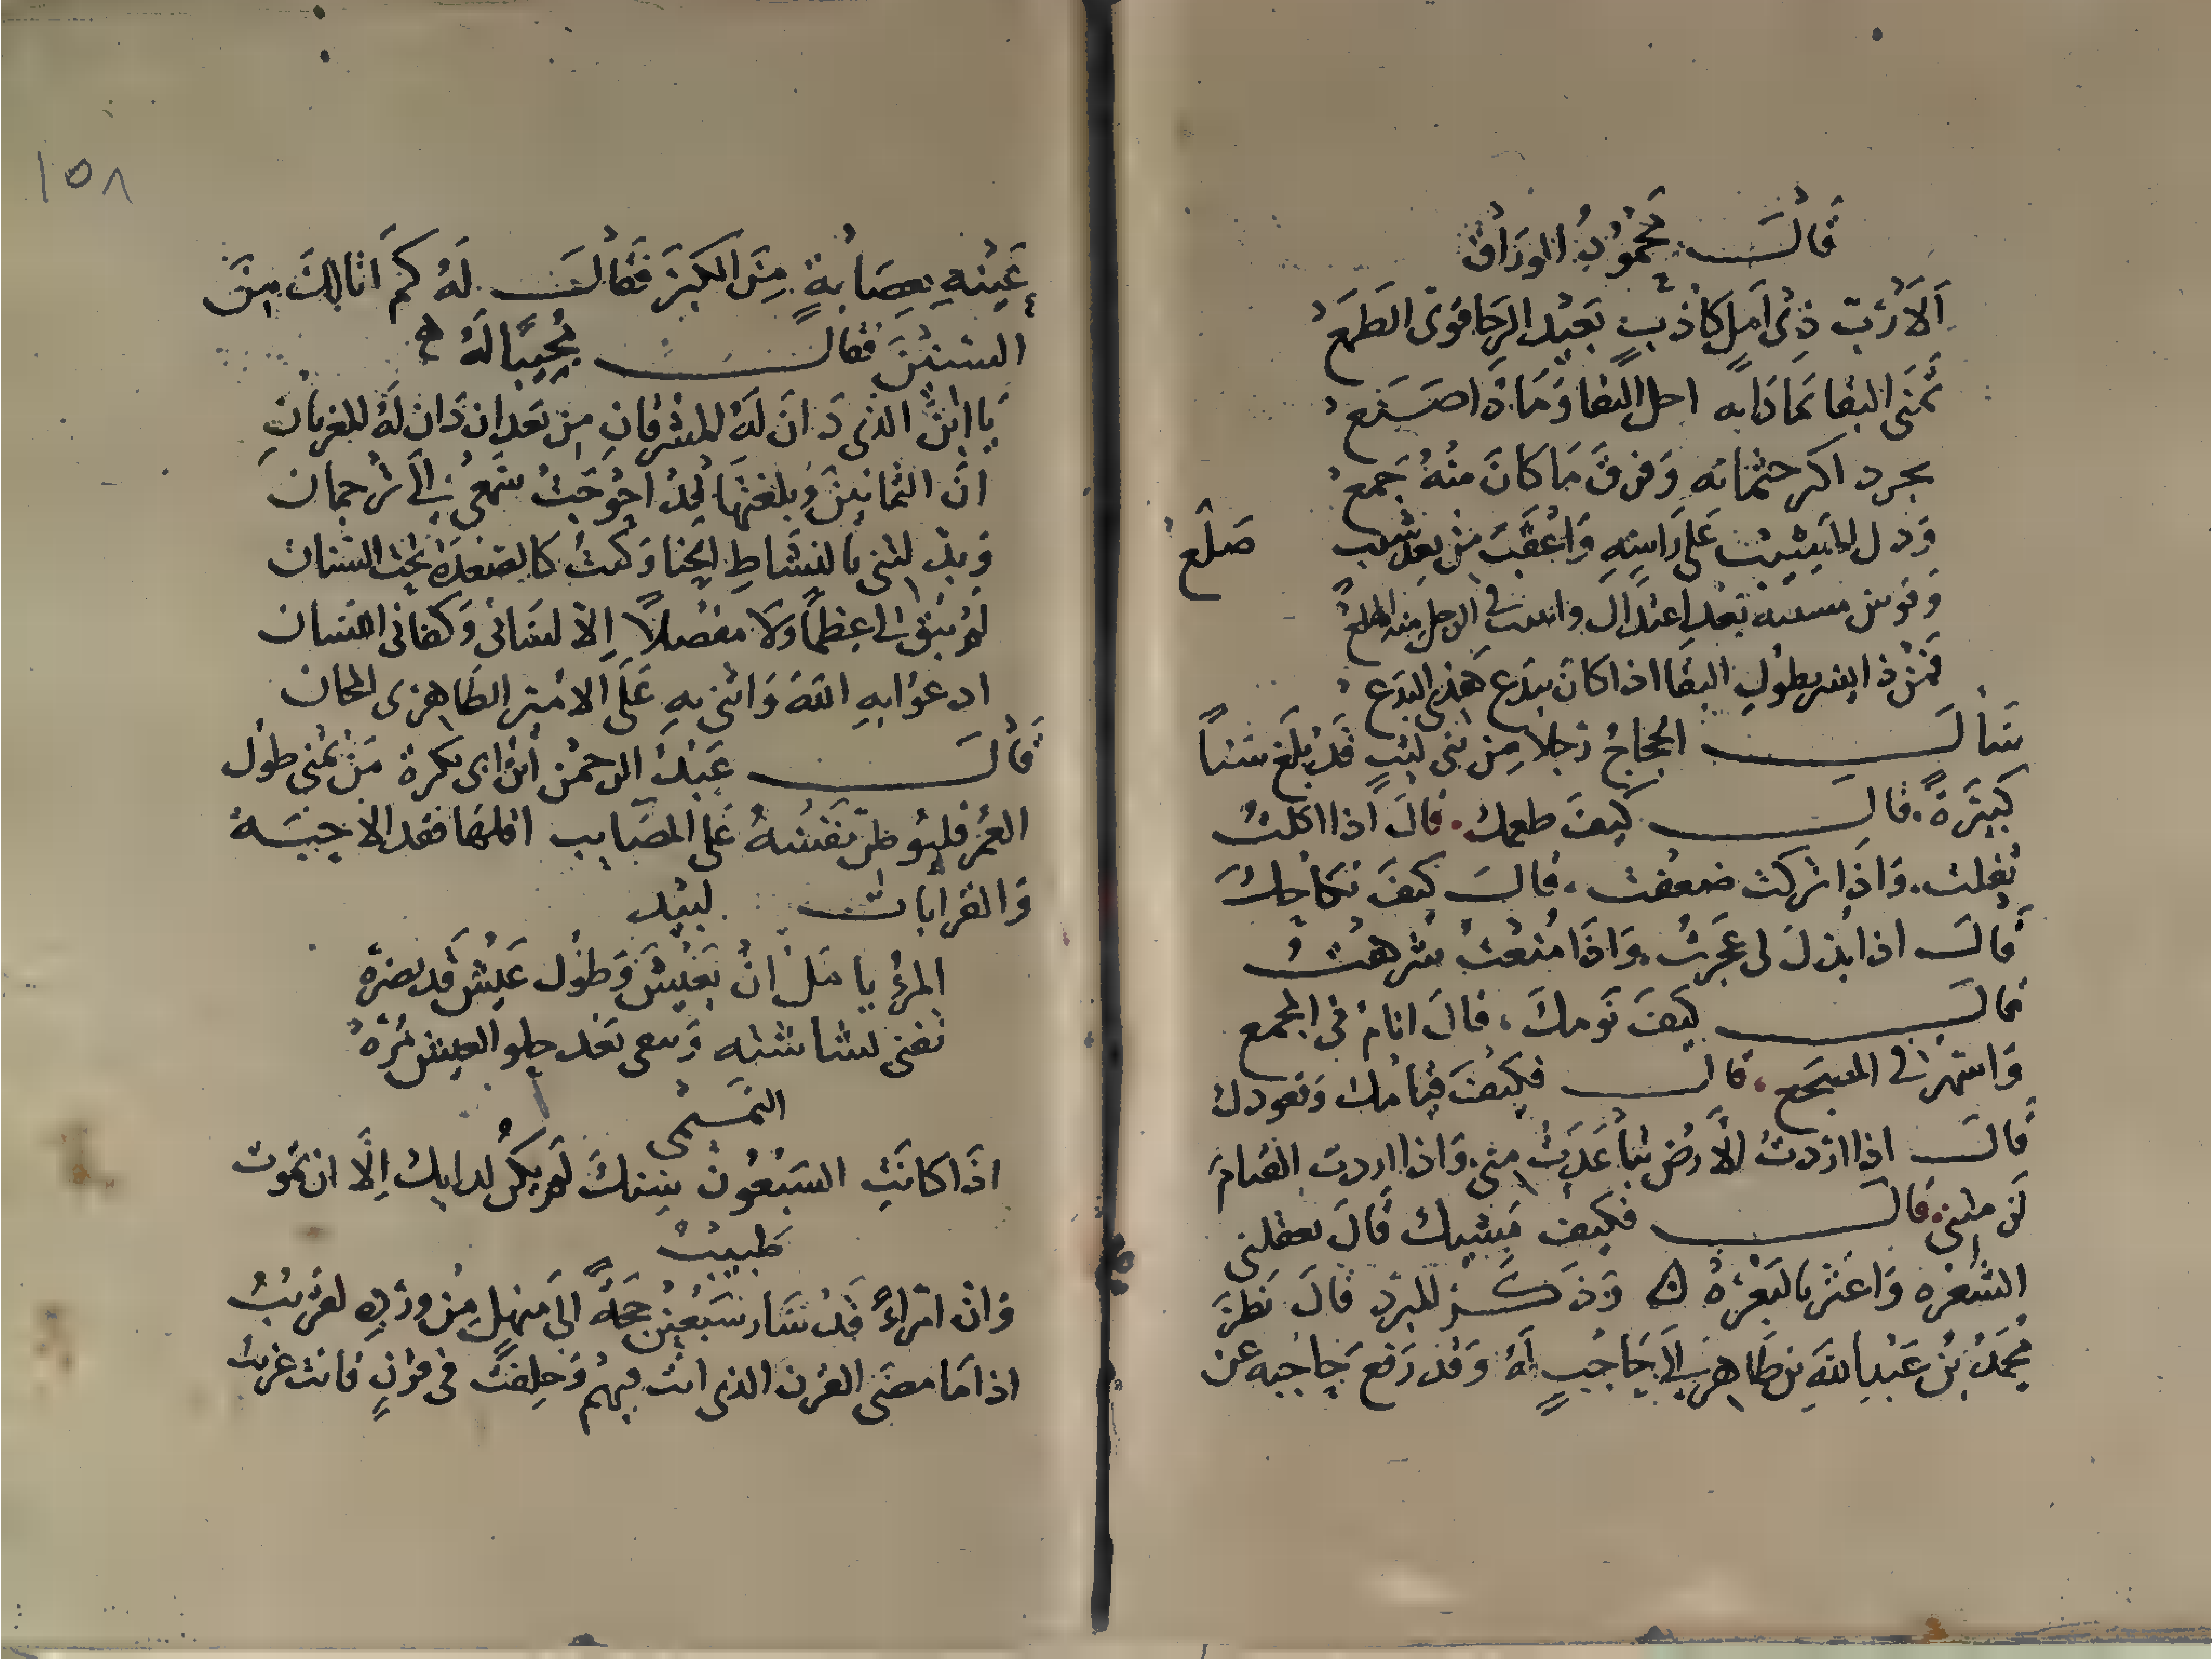 قال محمود الوراق
ألا رب ذي أمل كاذب بعيد الرجا قوي الطمع
تمنى البقا تمادا به احل البقا وماذا صنع
بجرد اكر حثمانه وفرق ما كان منه جمع
ودل المشيب على راسه واعقب من بعد شيب صلع
وقوس بعد اعتدال واثبت في الرجل منه الظلع
فمن ذا يسر بطول البقا اذا كان يبدع هذي البدع
سال الحجاج رجلا من بني ليث قد بلغ سنا
كبيرة. قال كيف طعمك. قال اذا اكلت
ثقلت. واذا تركت ضعفت. قال كيف نكاحك
قال اذا بذل لي عجزت. واذا منعت شرهت
قال كيف نومك. قال انام في المجمع
واسهر في المضجع. قال فكيف قيامك وقعودك
قال اذا اردت الارض تباعدت مني. واذا اردت القيام
لزمتني. قال فكيف مشيك قال تعقلني
الشعره واعثر بالبعره ه وذكر المبرد قال نظر
محمد بن عبد الله بن طاهر الى حاجب له وقد رفع حاجبه عن
١٥٨
عينه بعصابة من الكبر فقال له كم انا لك من
السنين فقال مجيبا له
يا ابن الذي دان له المشرقان من بعد ان دان له المغربان
ان الثمانين وبلغتها قد احوجت سمعي الى ترجمان
وبدلتني بالنشاط انحنا وكنت كالصعدة تحت السنان
لم يبق لي عظما ولا مفصلا الا لساني وكفاني اللسان
ادعوا به الله واثني به على الامير الطاهري الهجان
قال عبد الرحمن ابن ابي بكرة من تمنى طول
العمر فليوطن نفسه على المصايب اقلها فقد الاحبة
والقرابات لبيد
المرؤ يامل ان يعيش وطول عيش قد يضره
تفنى بشاشته ويبقى بعد حلو العيش مره
التميمي
اذا كانت السبعون سنك لم يكن لدايك الا ان تموت
طبيب
وان امراء قد سار سبعين حجة الى منهل من ورده لقريب
اذا ما مضى القرن الذي انت فيهم وخلفت في قرن فانت غريب